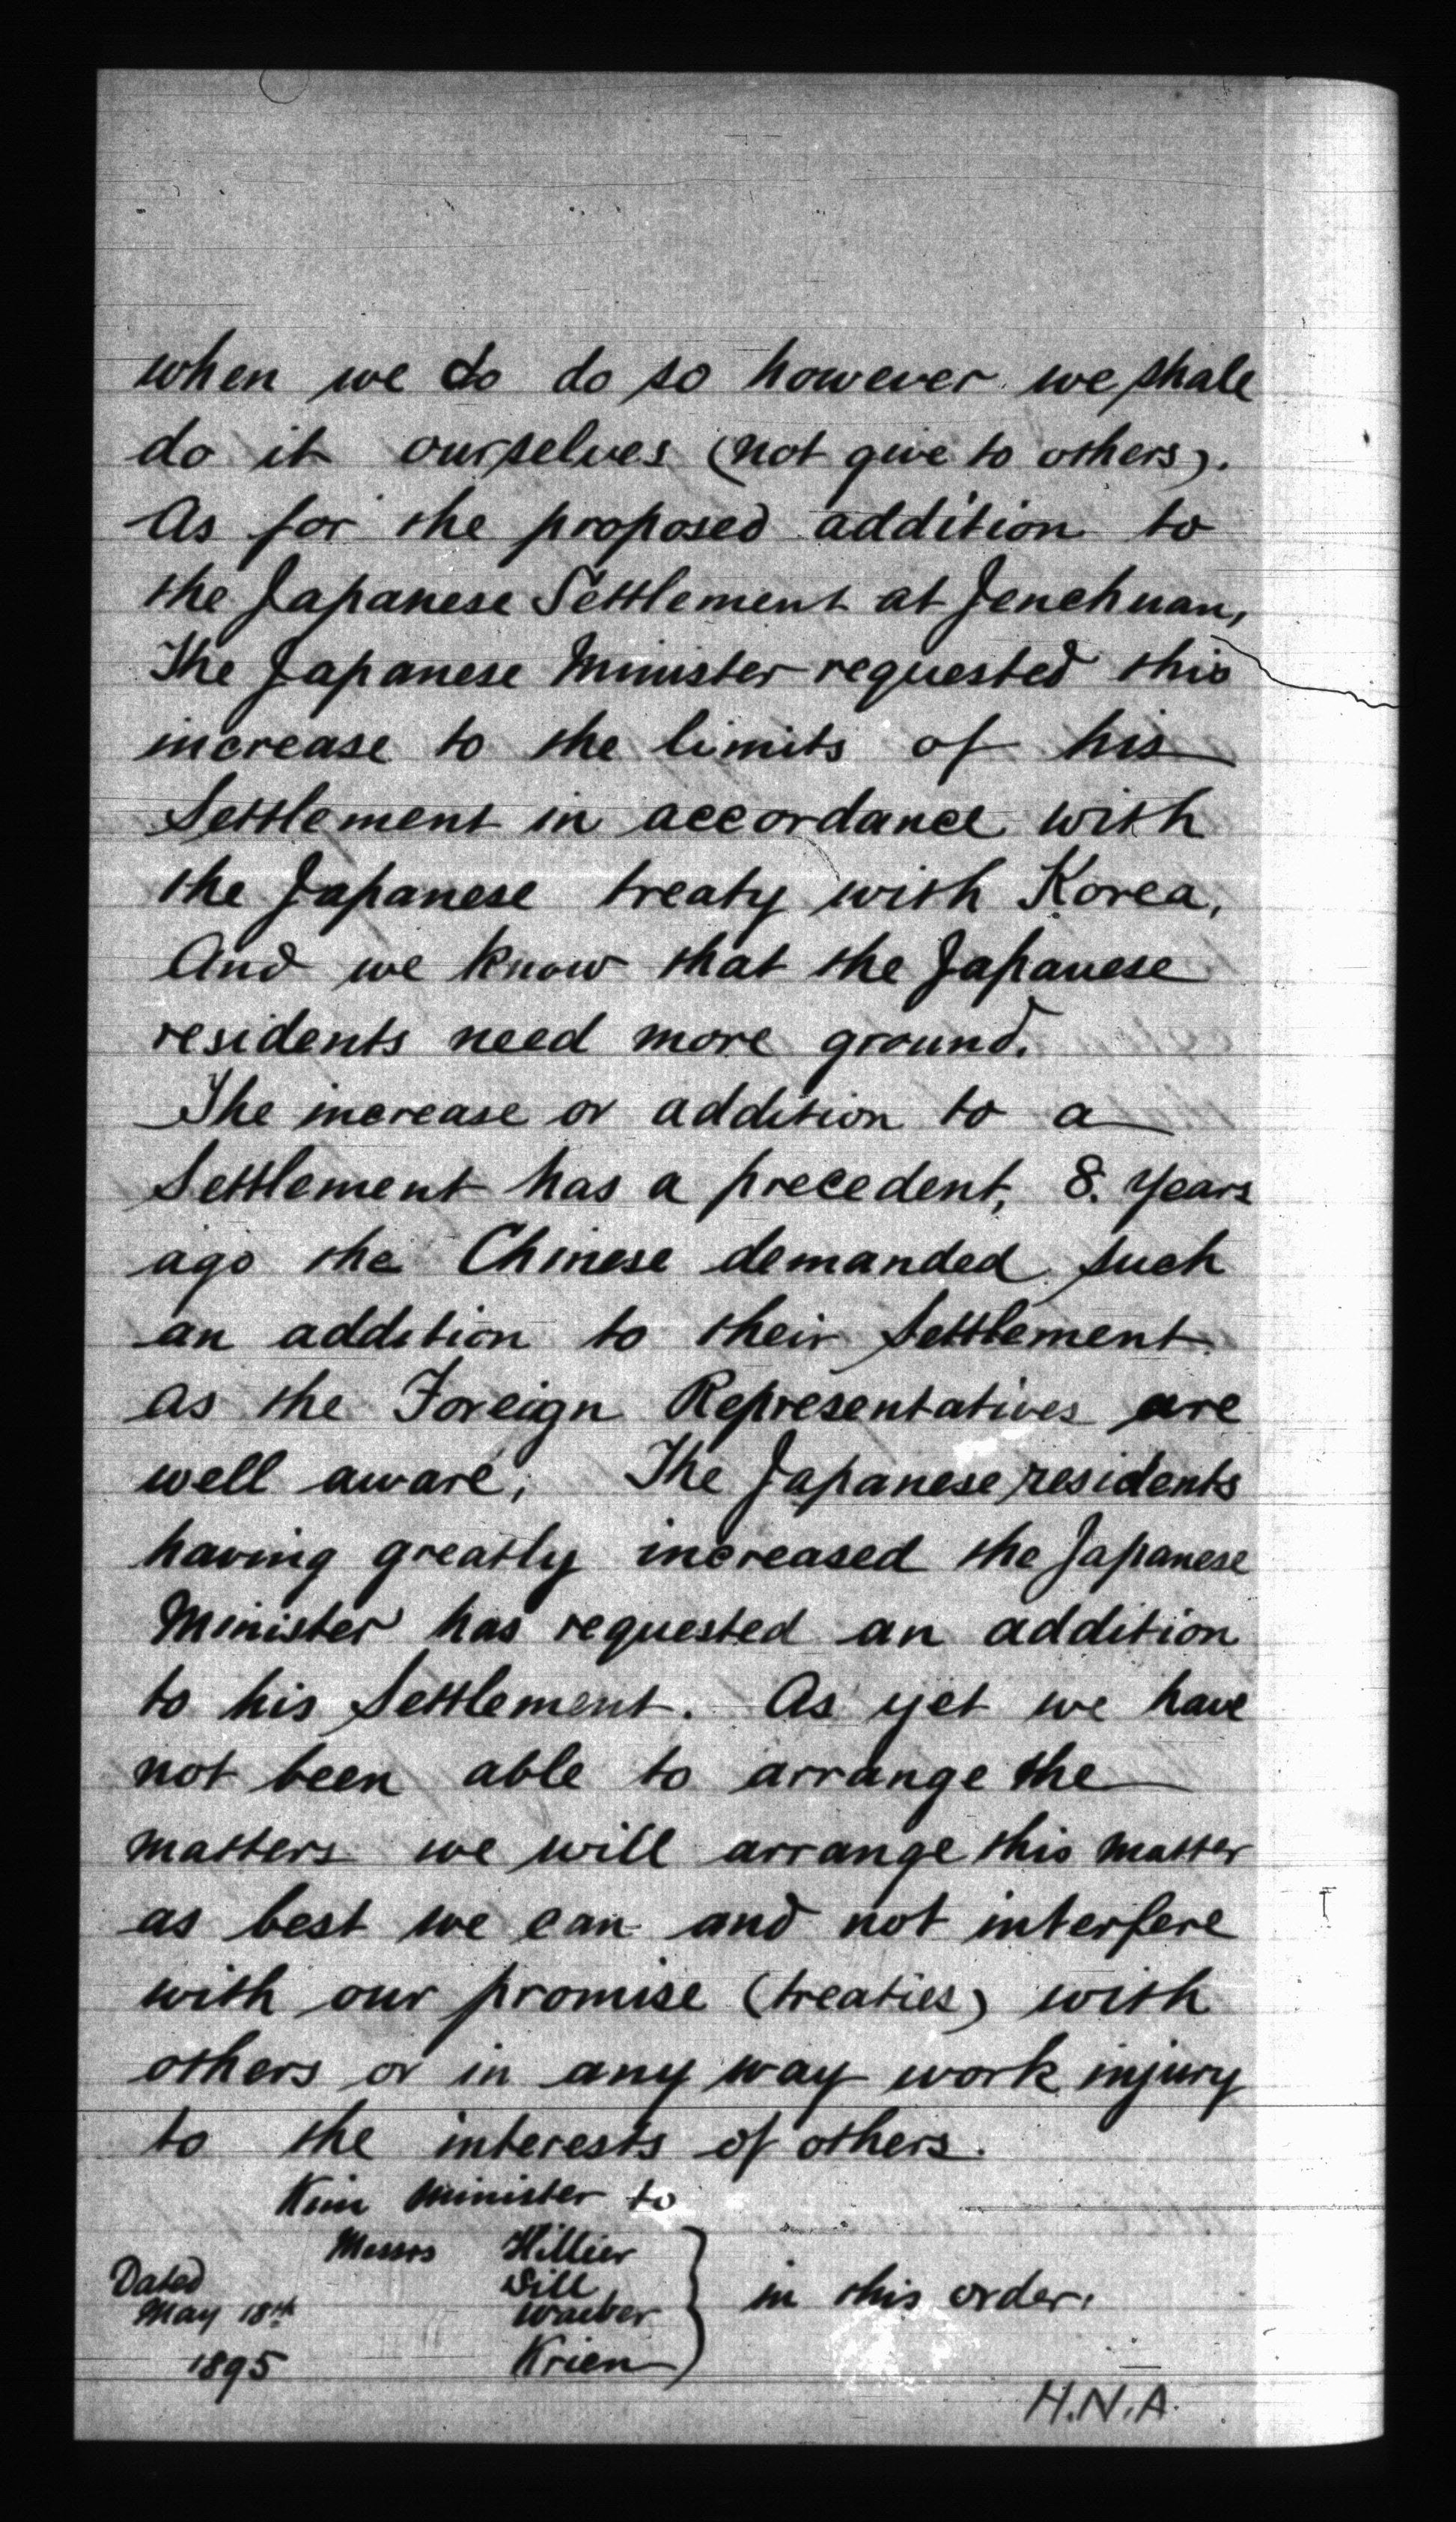 when we do do so however we shall
do it ourselves (not give to others).
As for the proposed addition to
the Japanese Settlement at Jenchuan,
The Japanese Minister requested this
increase to the limits of his
Settlement in accordance with
the Japanese treaty with Korea,
And we know that the Japanese
residents need more ground.
The increase or addition to a
Settlement has a precedent, 8. years
ago the Chinese demanded such
an addition to their Settlement
as the Foreign Representatives are
well aware; The Japanese residents
having greatly increased the Japanese
Minister has requested an addition
to his Settlement. As yet we have
not been able to arrange the
matters we will arrange this matter
as best we can and not interfere
with our promise (treaties) with
others or in any way work injury
to the interests of others.
Kim Minister to
Messrs Hillier
Sill
Waeber
Krien
in this order.
Dated
May 18th
1895
H.N.A.